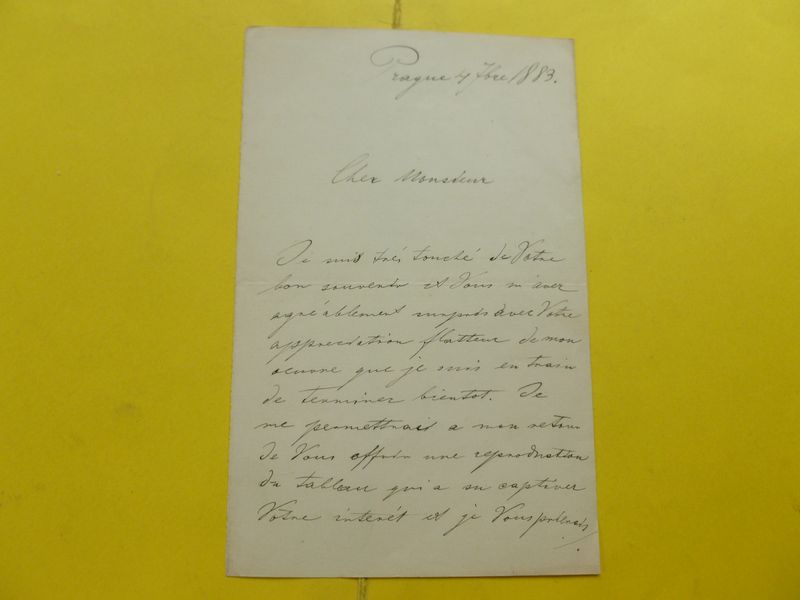 Prague 4 7bre 1883.
Cher Monsieur
Je suis trés touché de Votre
bon souvenir et Vous m'avez
agréablement surpris avec Votre
appreciation flatteur de mon
oeuvre que je suis en train
de terminer bientot. Je
me permettrais a mon retour
de Vous offrir une reproduction
du tableau qui a su captiver
Votre interét et je Vous